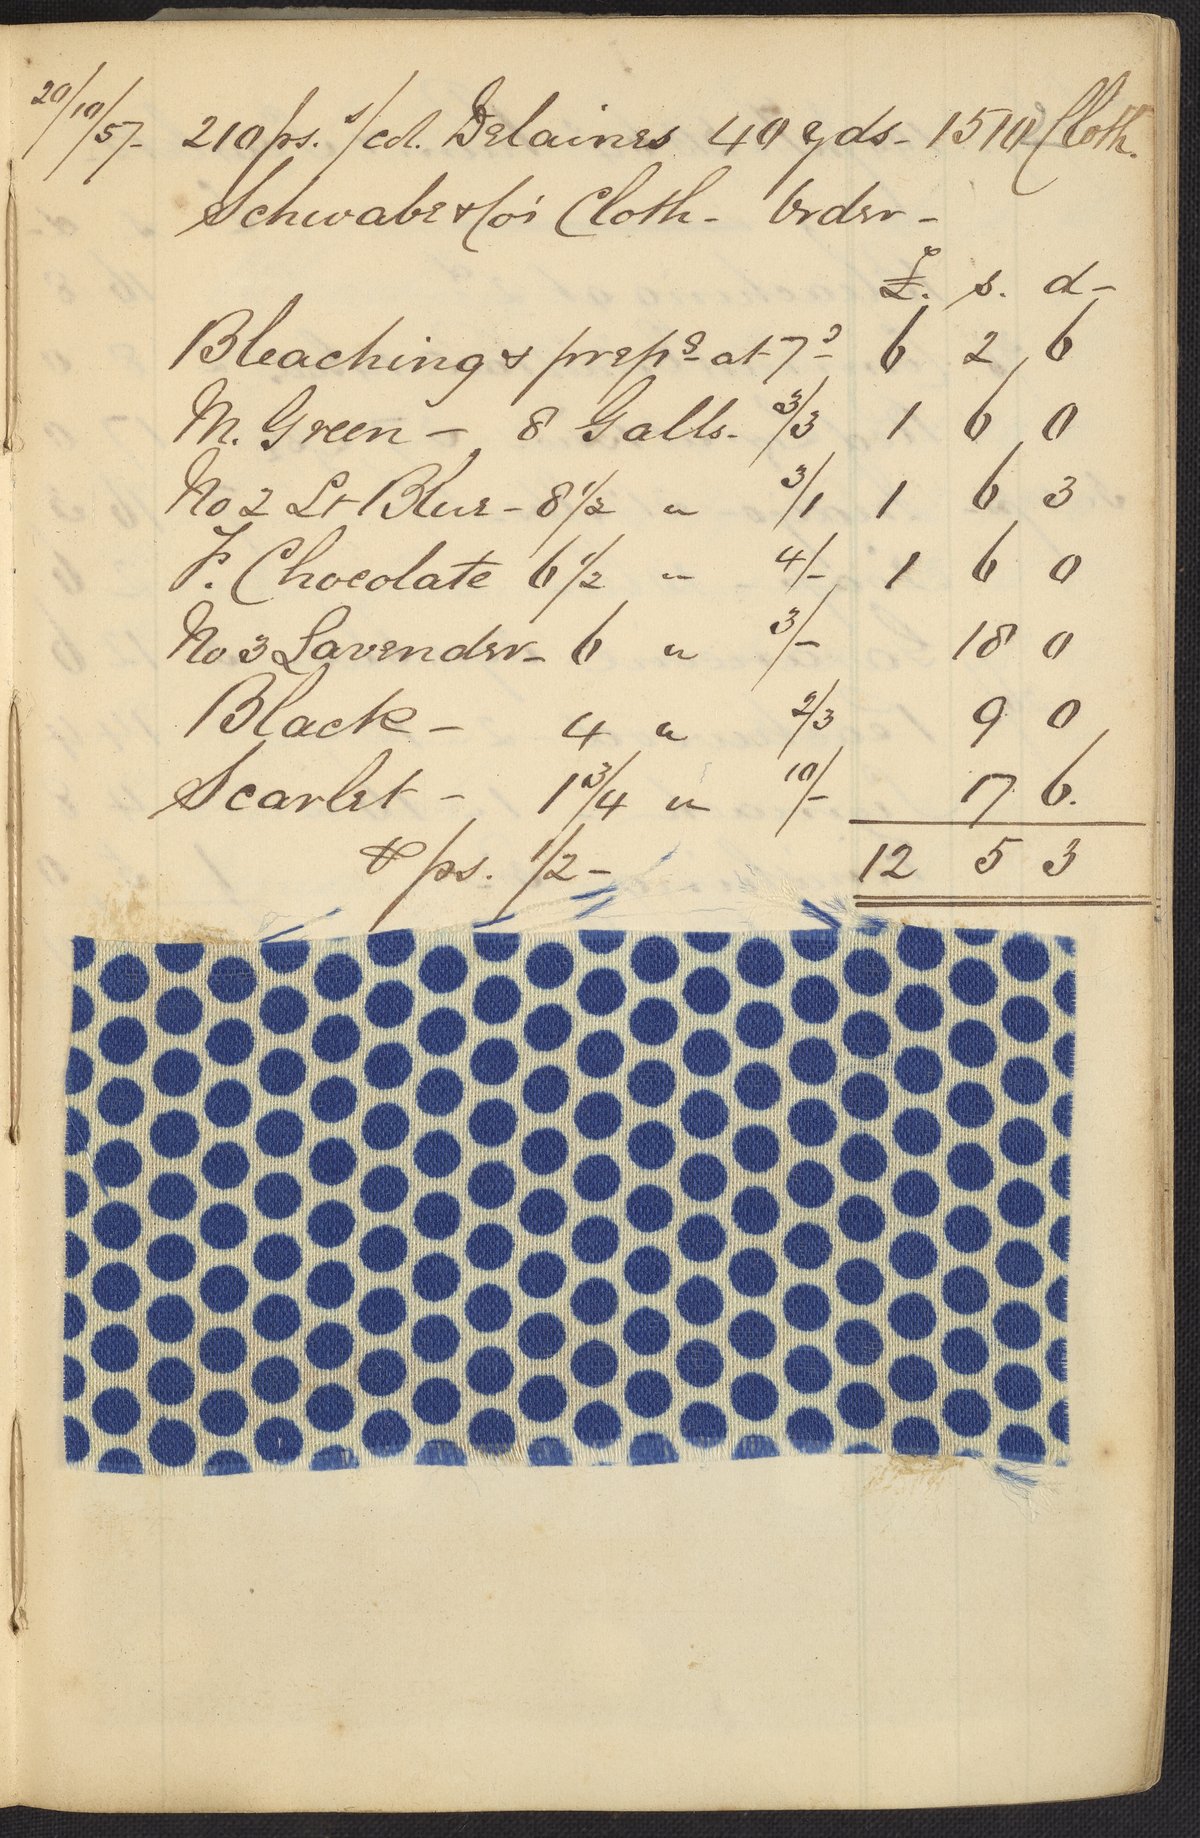 20/10/57- 210 ps. 1/Col. Delaines 40 yds- 1510 Cloth.
Schwabe & Co's Cloth- Order-
£. s. d-
Bleaching & prepg at 7d- 6 2 6
M. Green - 8 Galls. 3/3 1 6 0
No 2 Lt Blue - 8 1/2 " 3/1 1 6 3
F. Chocolate 6 1/2 " 4/- 1 6 0
No 3 Lavender- 6 " 3/- 18 0
Black - 4 " 2/3 9 0
Scarlet - 1 3/4 " 10/- 17 6.
ps. 1/2- 12 5 3